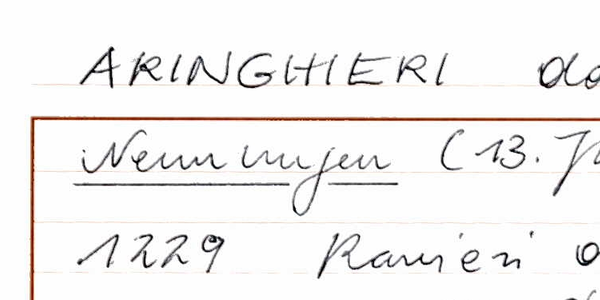 ARINGHIERI
Nennungen (13.
1229 Ranieri